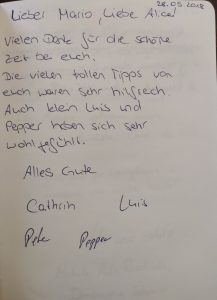 28.05.2018
Lieber Mario, Liebe Alice
Vielen Dank für die schöne
Zeit bei euch.
Die vielen tollen Tipps von
euch waren sehr hilfreich
Auch klein Luis und
Pepper haben sich sehr
wohlgefühlt.
Alles Gute
Cathrin Luis
Pete Pepper